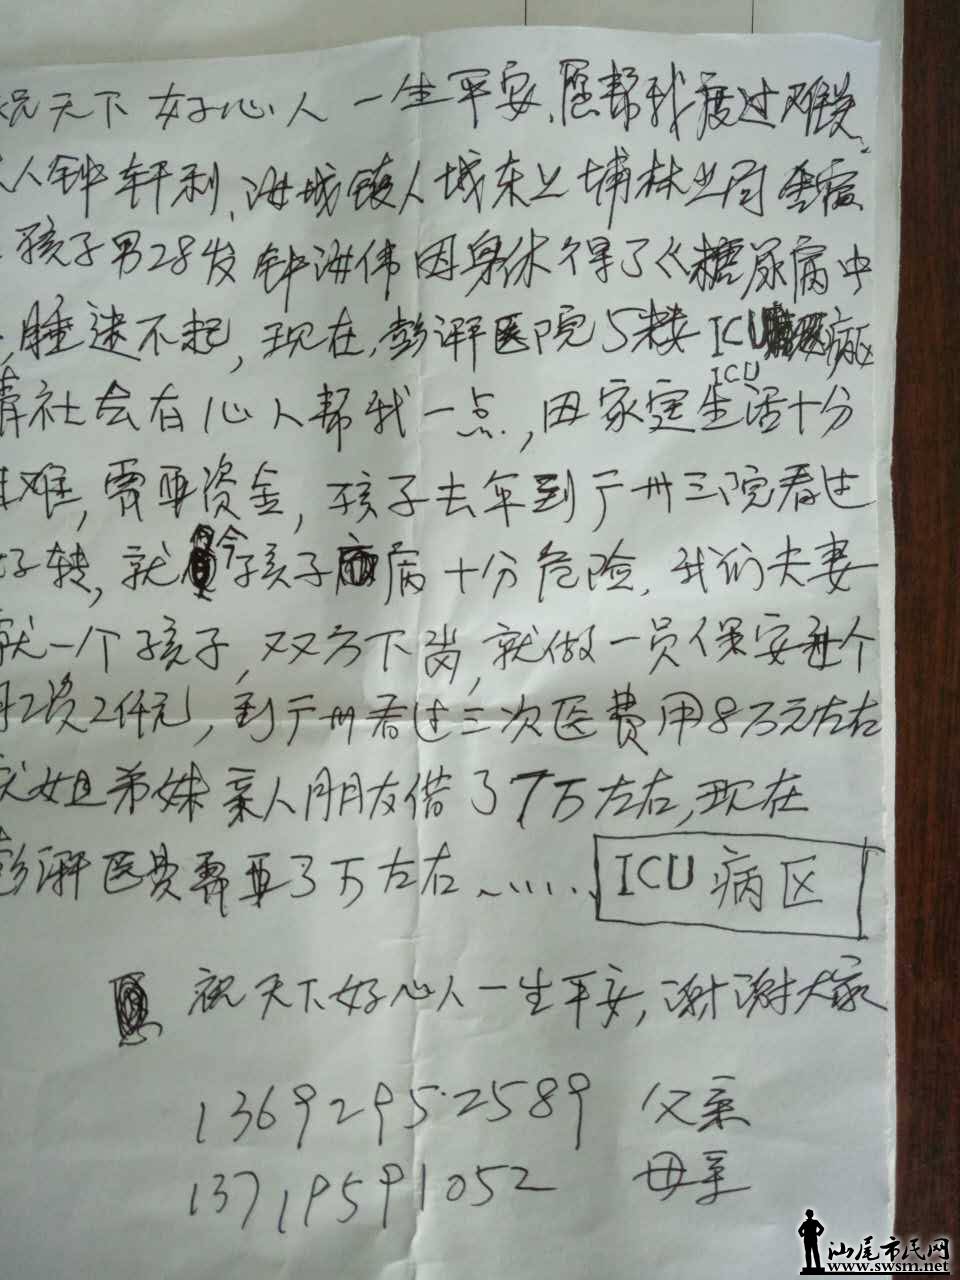 祝天下好心人一生平安,愿帮我度过难关
人钟轩利,海城镇人城东
孩子男28岁钟海伟因身体得了《糖尿病中
,睡迷不起,现在,彭湃医院5楼ICU病区
ICU
请社会有心人帮我一点,因家定生活十分
难,需要资金,孩子去年到广州三院看过
好转,就今孩子病十分危险,我们夫妻
就一个孩子,双方下岗,就做一员保安每个
月工资2仟元,到广州看过三次医费用8万元左右
姐弟妹亲人朋友借了7万左右,现在
彭湃医费需要3万左右…… ICU病区
祝天下好心人一生平安,谢谢大家
13692952589 父亲
13719591052 母亲
汕尾市民网
www.swsm.net